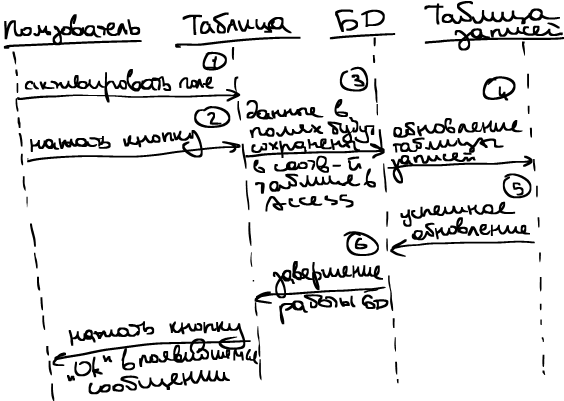 Пользователь
Таблица
БД
Таблица
записей
1
активировать поле
2
нажать кнопку
3
Данные в
полях будут
сохранены
в соотв-й
таблице в
Access
4
обновление
таблицы
записей
5
успешное
обновление
6
завершение
работы БД
нажать кнопку
"Ok" в появившемся
сообщении